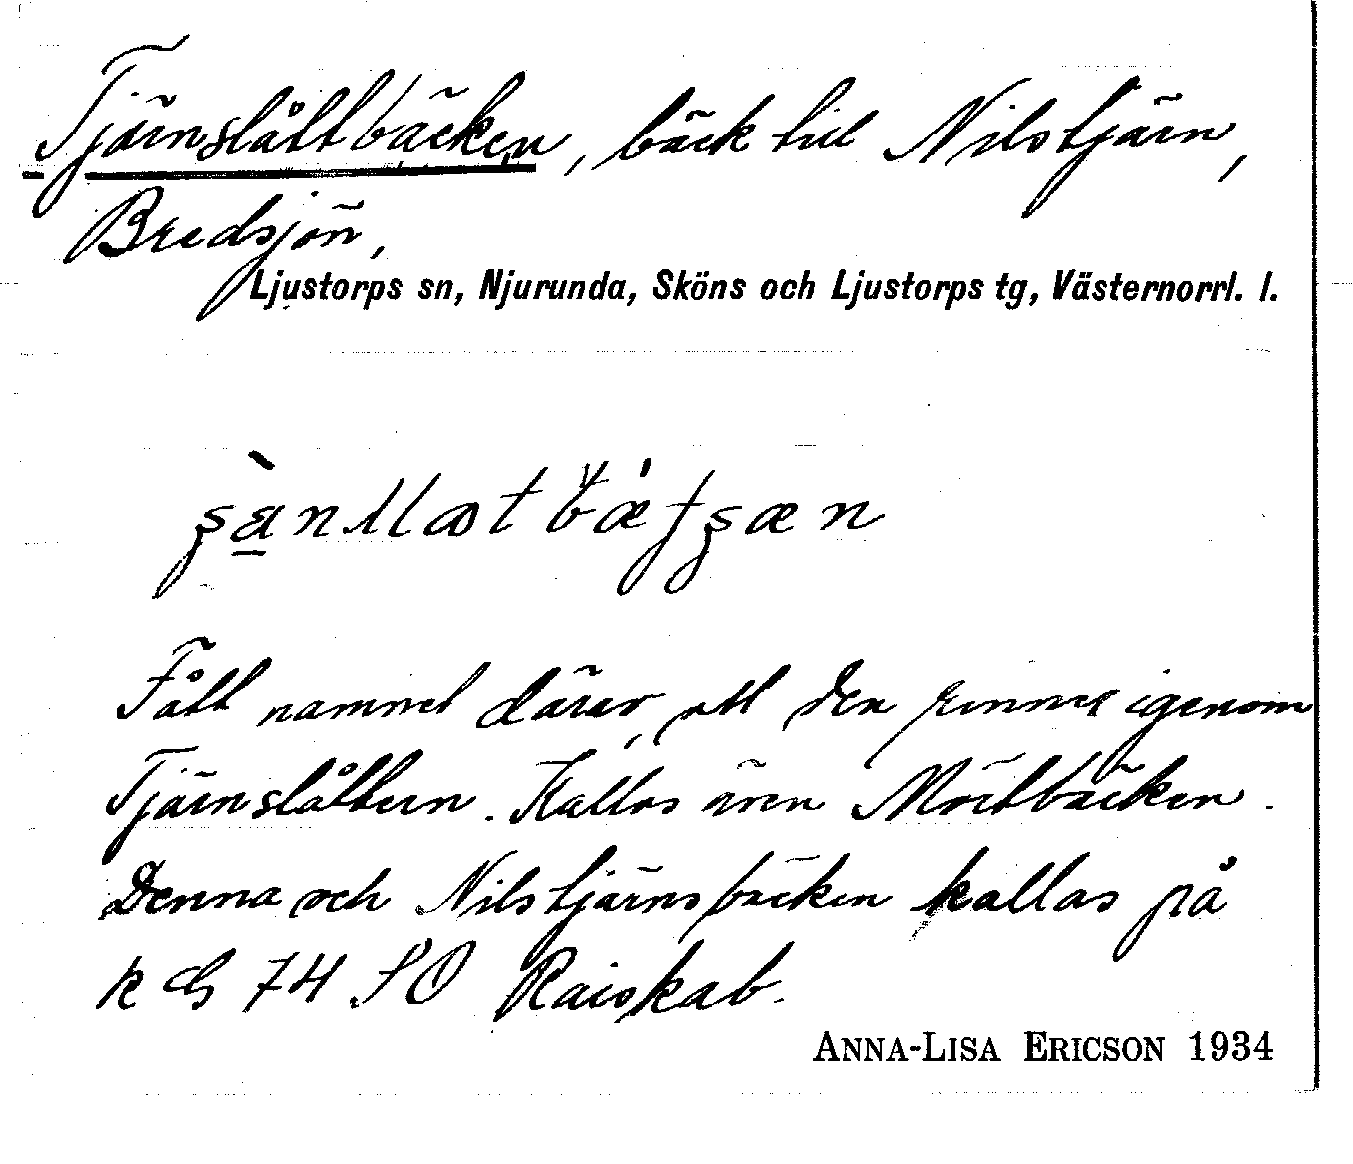 Tjärnslåttbäcken, bäck till Nilstjärn,
Bredsjön,
Ljustorps sn, Njurunda, Sköns och Ljustorps tg, Västernorrl. l.
Fått namnet därav, att den rinner igenom
Tjärnslåttern. Kallas även Mörtbäcken.
Denna och Nilstjärnsbäcken kallas på
k G 74 SO Raiskab.
ANNA-LISA ERICSON 1934